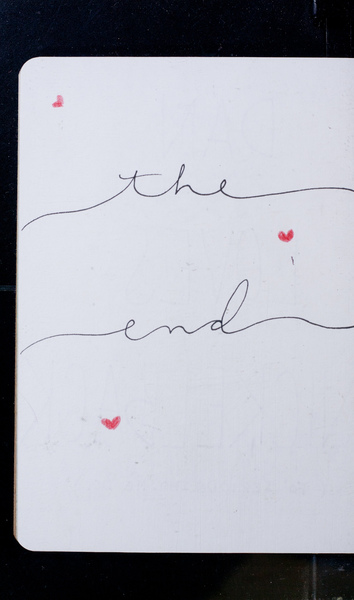 the
end